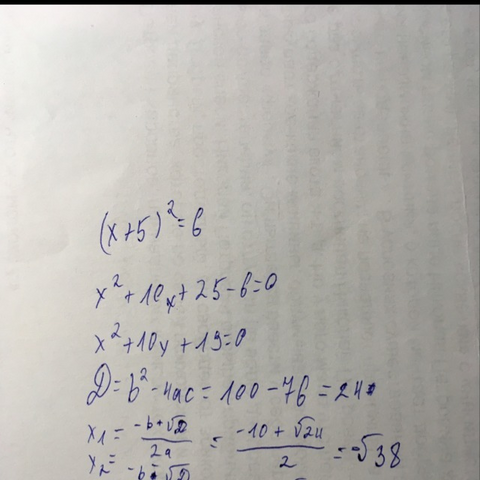 (x+5)²=6
x²+10x+25-6=0
x²+10x+19=0
D=b²-4ac=100-76=24
x₁= (-b+√D)/2a = (-10+√24)/2 = -√38
x₂= -b-√D